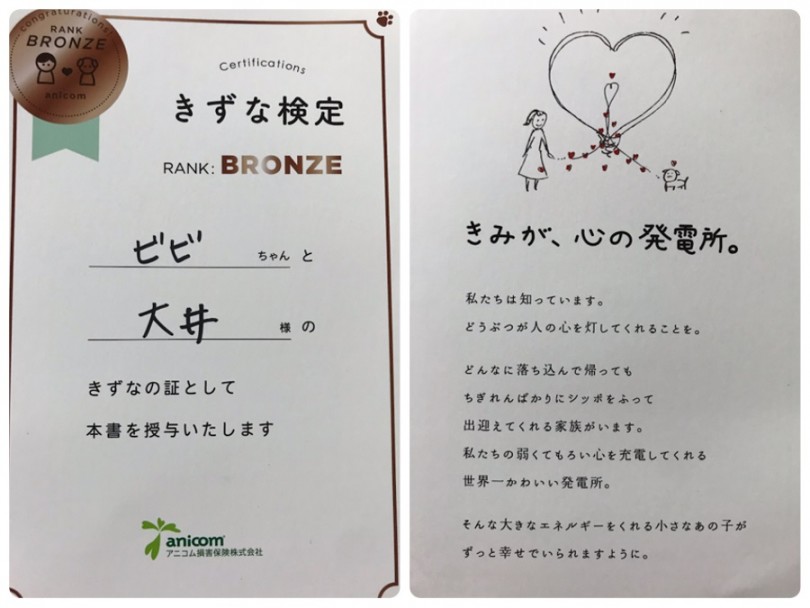 congratulations!
RANK
BRONZE
anicom
Certifications
きずな検定
RANK: BRONZE
ビビ ちゃん と
大井 様 の
きずなの証として
本書を授与いたします
anicom
アニコム損害保険株式会社
きみが、心の発電所。
私たちは知っています。
どうぶつが人の心を灯してくれることを。
どんなに落ち込んで帰っても
ちぎれんばかりにシッポをふって
出迎えてくれる家族がいます。
私たちの弱くてもろい心を充電してくれる
世界一かわいい発電所。
そんな大きなエネルギーをくれる小さなあの子が
ずっと幸せでいられますように。